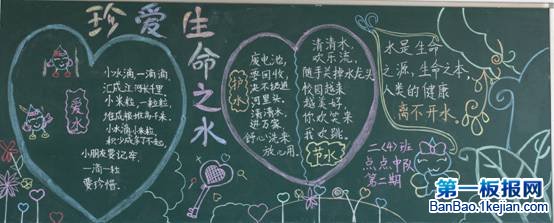 珍爱生命之水
爱水
小水滴,一滴滴,
汇成江河长千里
小米粒,一粒粒,
堆成粮垛与千米
小水滴小米粒
积少成多了不起
小朋友要记牢
一滴一粒
要珍惜.
护水
废电池,
要回收,
决不扔进
河里头.
清清水,
进万家,
舒心洗来
放心用.
清清水,
欢乐流,
随手关掉水龙头
校园越来
越美好,
你欢笑来
我欢跳.
节水
水是生命
之源,生命之本,
人类的健康
离不开水.
二(4)班
点点中队
第二期
第一板报网
BanBao.1kejian.com